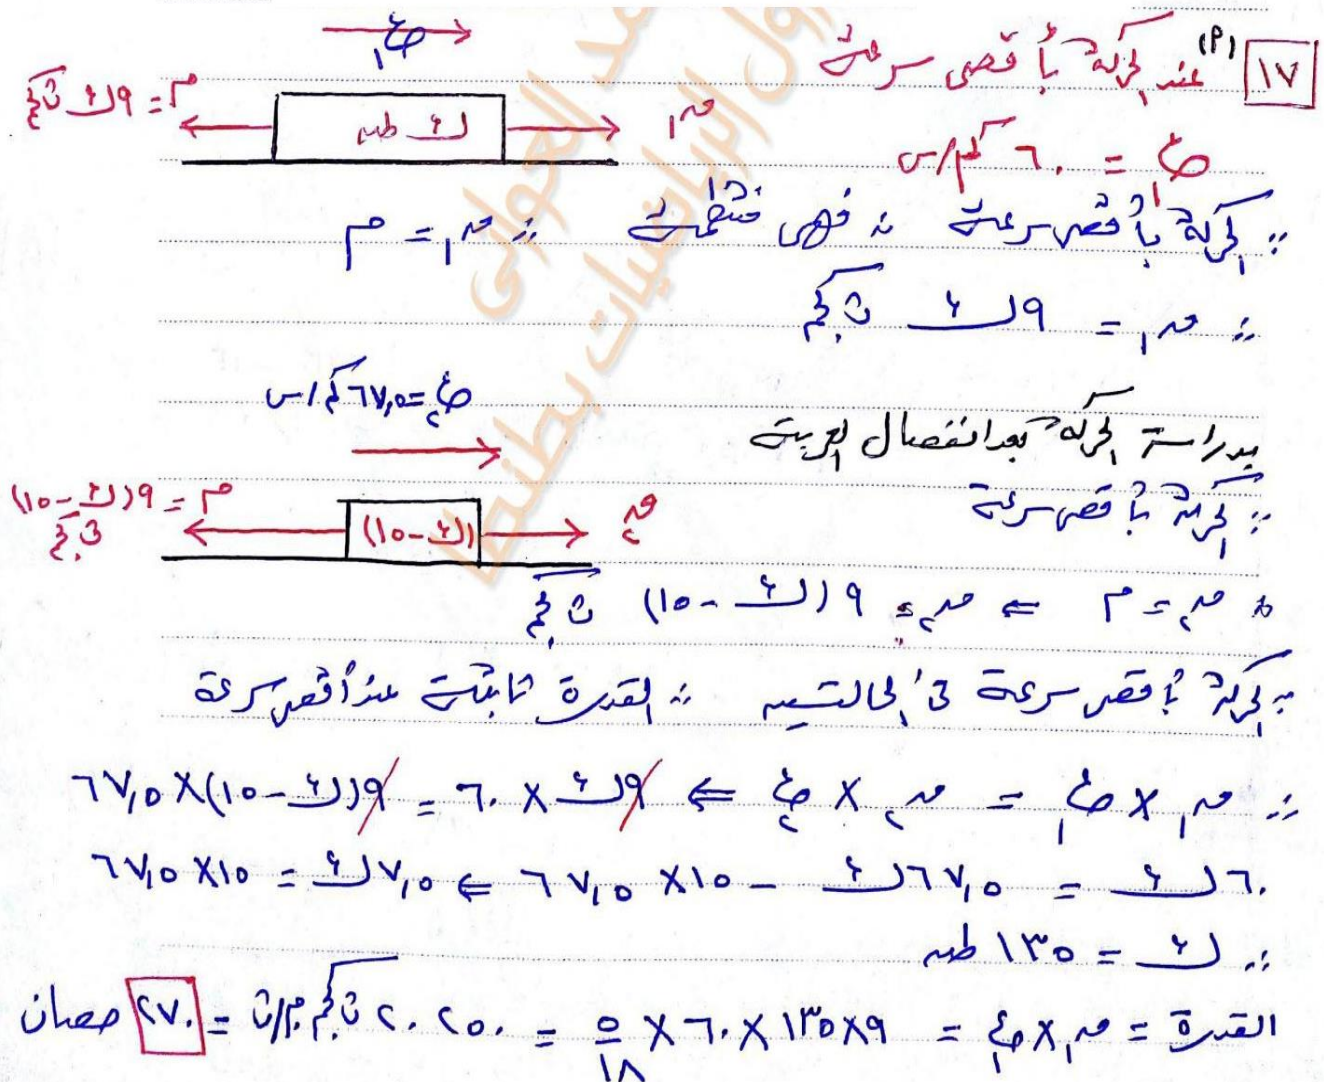 ١٧ (أ) عند الحركة بأقصى سرعة
ع١
م = ٩ك ث كجم
ك طن
ق١
ع١ = ٦٠ كم/س
∵ الحركة بأقصى سرعة ∴ فهى منتظمة ∴ ق١ = م
∴ ق١ = ٩ ك ث كجم
ع٢ = ٦٧,٥ كم/س
بدراسة الحركة بعد انفصال العربة
∵ الحركة بأقصى سرعة
م = ٩(ك - ١٥) ث كجم
(ك - ١٥)
ق٢
∴ ق٢ = م ⇐ ق٢ = ٩ (ك - ١٥) ث كجم
∵ الحركة بأقصى سرعة فى الحالتين ∴ القدرة ثابتة عند أقصى سرعة
∴ ق١ × ع١ = ق٢ × ع٢ ⇐ ٩ك × ٦٠ = ٩(ك - ١٥) × ٦٧,٥
٦٠ ك = ٦٧,٥ ك - ١٥ × ٦٧,٥ ⇐ ٧,٥ ك = ١٥ × ٦٧,٥
∴ ك = ١٣٥ طن
القدرة = ق١ × ع١ = ٩ × ١٣٥ × ٦٠ × ٥/١٨ = ٢٠٢٥٠ ث كجم.م/ث = ٢٧٠ حصان